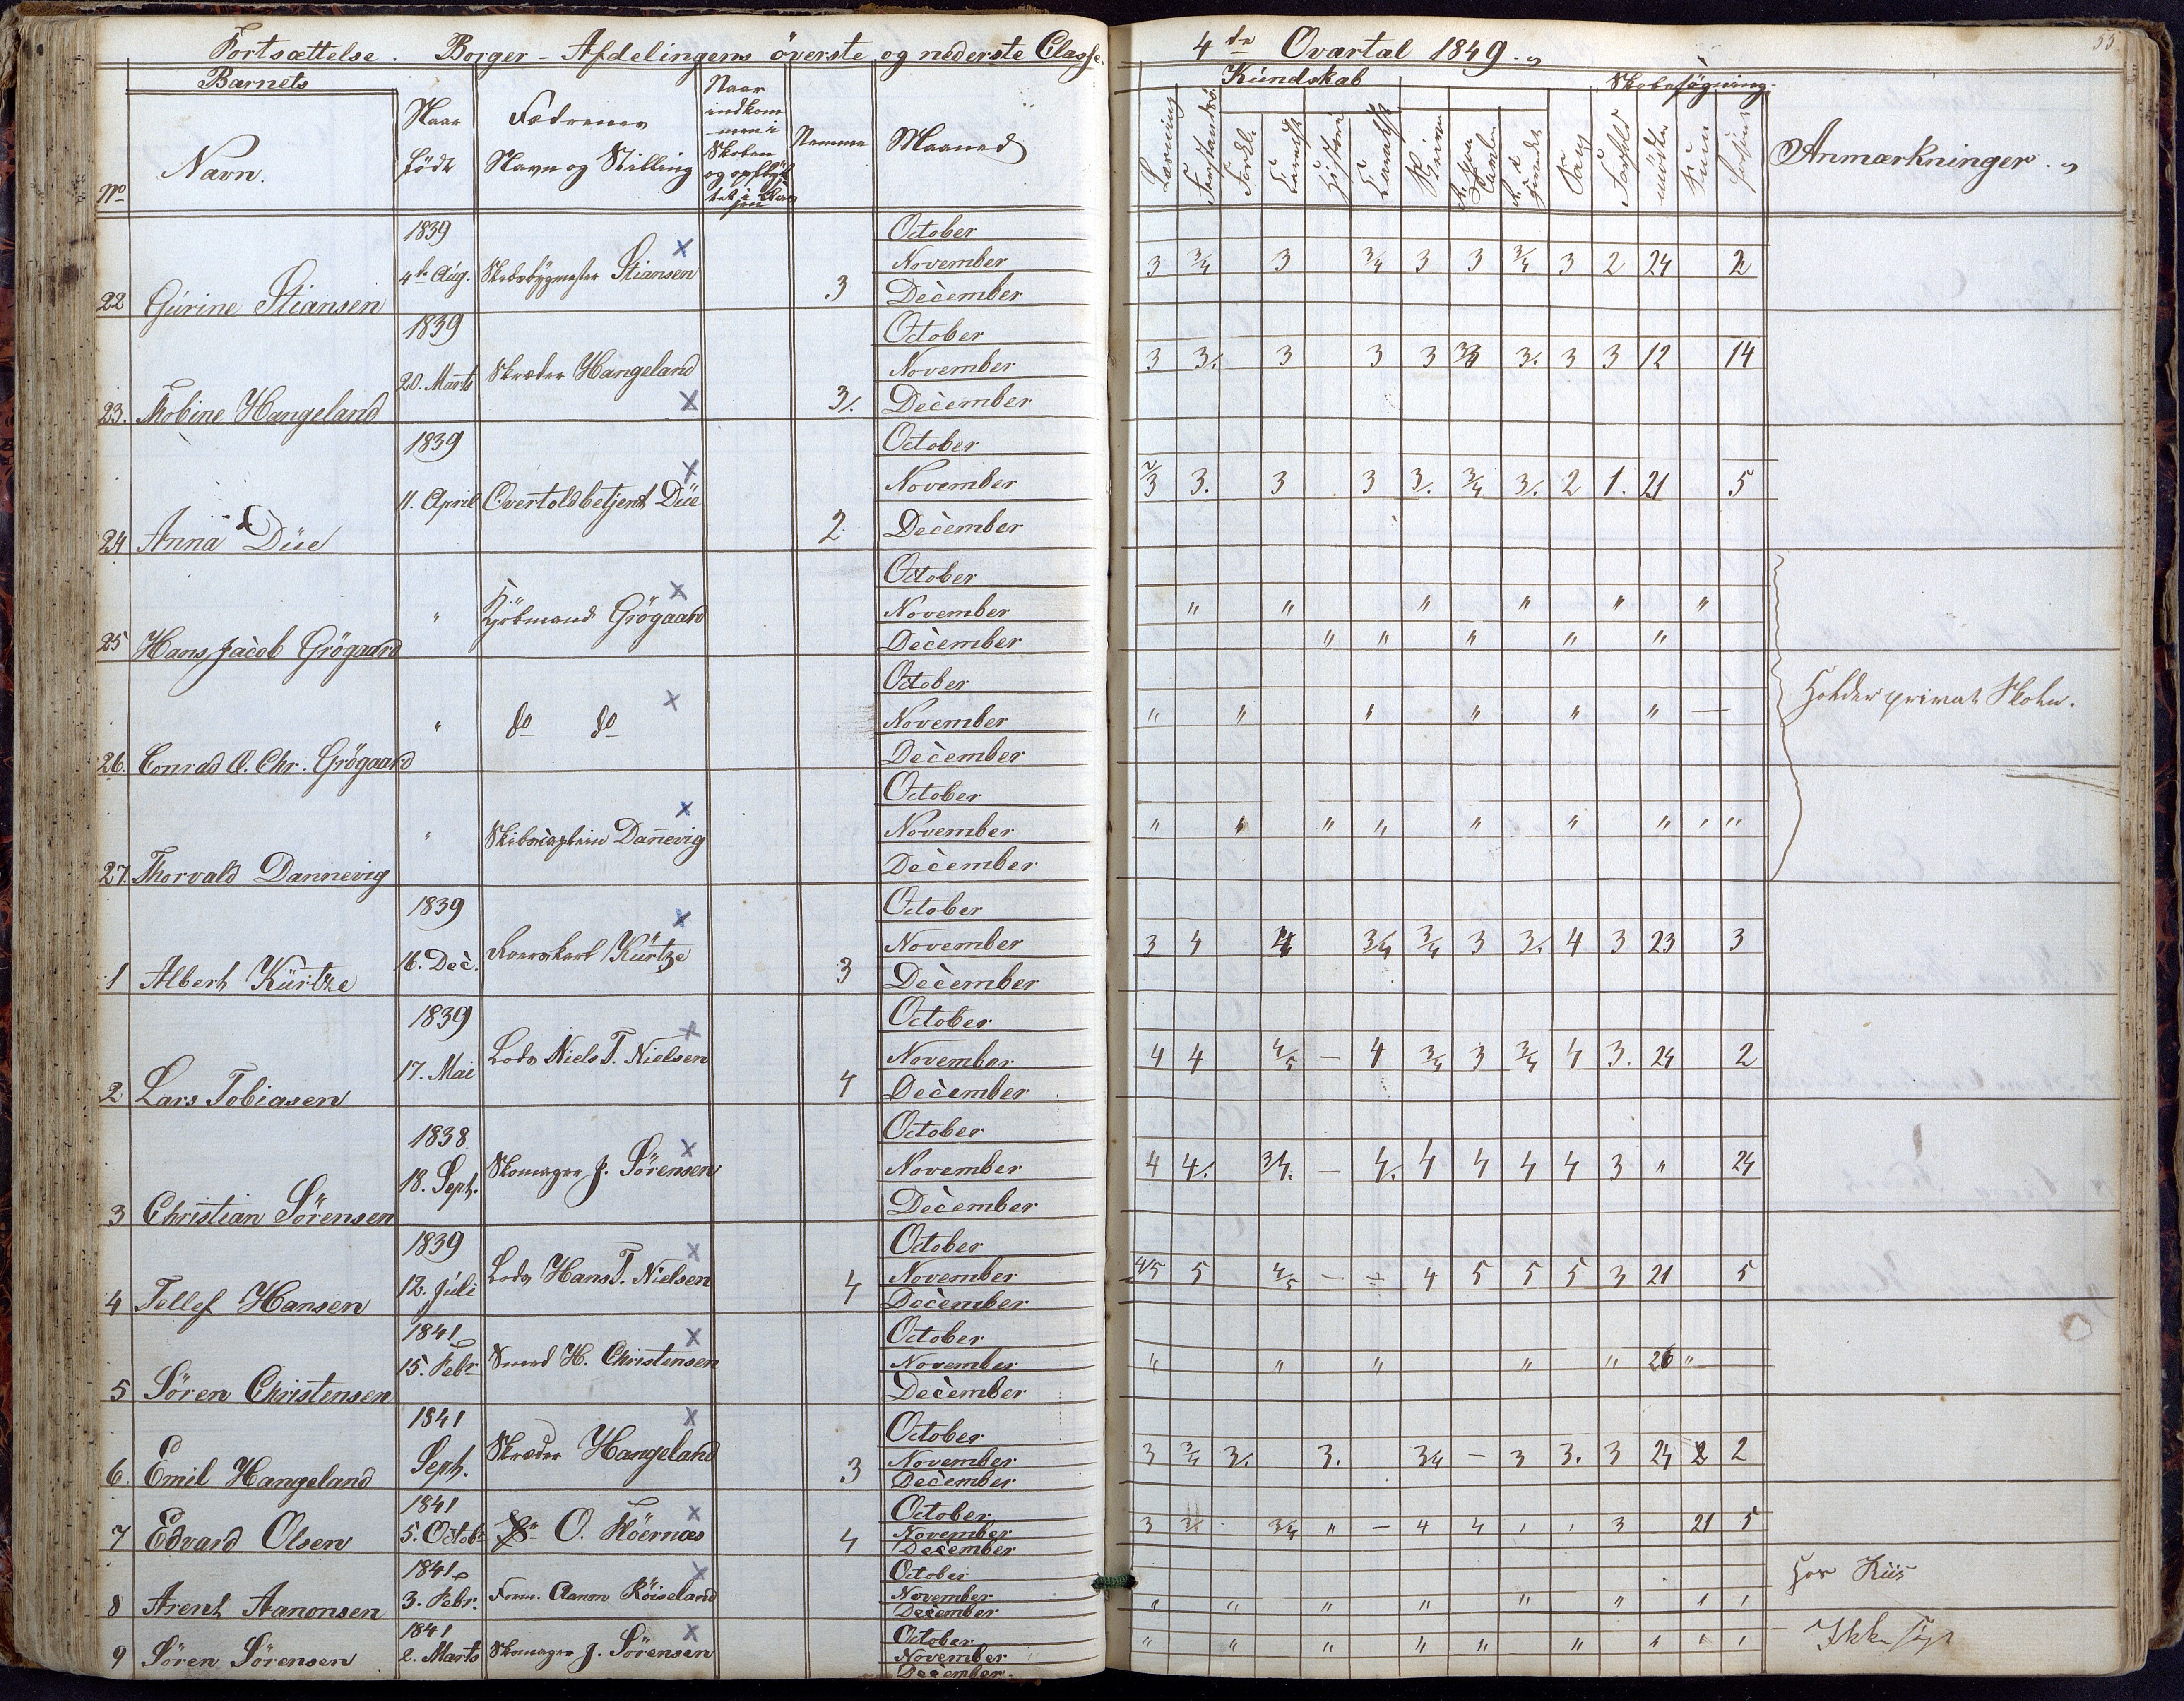 Fortsættelse. Borger-Afdelingens överste og nederste Classe.
Barnets
No Navn.
Naar födt
Fædrenes Navn og Stilling
Naar indkommen i Skolen og
Nemme
Maaned
1839 October
22 Gúrine Stiansen 4de Aúg. Skibsbygmester Stiansen 3 November
December
1839 October
23. Thobine Hangeland 20. Marts Skræder Hangeland 3/. November
December
1839 October
24 Anna Düe 11. April Overtoldbetjent Düe 2 November
December
October
25 Hans Jacob Grögaard " Kjöbmand Grögaard November
December
October
26. Conrad O. Chr. Grögaard " do do November
December
October
27. Thorvald Dannevig " Skibscaptein Dannevig November
December
1839 October
1 Albert Kürtze 16. Dec. Kürtze 3 November
December
1839 October
2 Lars Tobiasen 17. Mai Lods Niels T. Nielsen 4 November
December
1838. October
3 Christian Sörensen 18. Sept. Skomager J. Sörensen November
December
1839 October
4 Tellef Hansen 12. Júli Lods Hans T. Nielsen 4 November
December
1841 October
5 Sören Christensen 15. Febr Smed H. Christensen November
December
1841 October
6. Emil Hangeland Sept. Skræder Hangeland 3 November
December
1841 October
7 Edvard Olsen 5. Octob. O. Flöernæs 4 November
December
1841 October
8 Arent Aanonsen 3. Febr. Aanon Röiseland November
December
1841 October
9 Sören Sörensen 2. Marts Skomager J. Sörensen November
December.
4de Qvartal 1849.
53
Kúndskab
Skolesögning.
Læsning
Historie
Skrivn
Sang
Forhold
Anmærkninger.
3 3/4 3 3/4 3 3 3/4 3 2 24 2
3 3/. 3 3 3 3/. 3 3 12 14
2/3 3. 3 3 3/. 3/4 3/. 2 1. 21 5
" " " " " "
" " " " " "
Holder privat Skole.
" " " " " " —
" " " " " " " " "
3 4 4 3/4 3/4 3 3/. 4 3 23 3
4 4 4/5 — 4 3/4 3 3/4 4 3. 24 2
4 4/. 3/4. — 4. 4 4 4 4 3 " 24
4/5 5 4/5 — ÷ 4 5 5 5 3 21 5
" " " " " 26 "
3 3/4 3/. 3. 3/4 — 3 3. 3 24 2 2
3 3/. 3/4 " — 4 4 3 21 5
Hos Riis
" " " " " " " "
" " " " " " " " "
Ikke sögt